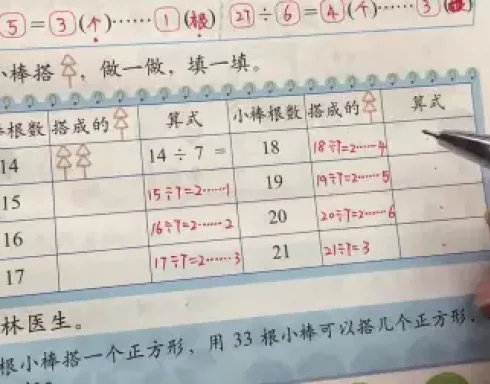 5 = 3 (个) …… 1 (根) 27 ÷ 6 = 4 (个) …… 3
小棒搭，做一做，填一填。
棒根数 搭成的 算式 小棒根数 搭成的 算式
14 14 ÷ 7 = 18 18÷7=2……4
15 15÷7=2……1 19 19÷7=2……5
16 16÷7=2……2 20 20÷7=2……6
17 17÷7=2……3 21 21÷7=3
林医生。
根小棒搭一个正方形，用 33 根小棒可以搭几个正方形，